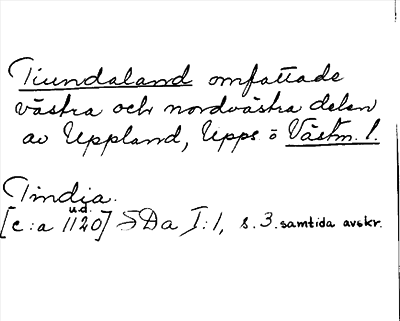 Tiundaland omfattade
västra och nordvästra delen
av Uppland, Upps. ö Västm. l.
Tindia.
u.d.
[c:a 1120] SDa I:1, s. 3. samtida avskr.